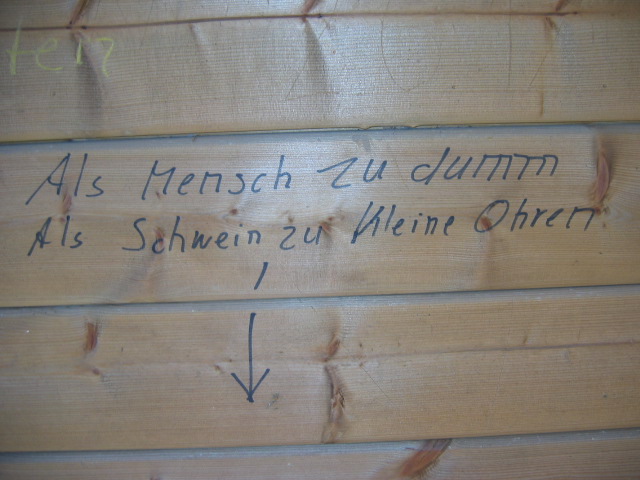 ten
Als Mensch zu dumm
Als Schwein zu kleine Ohren